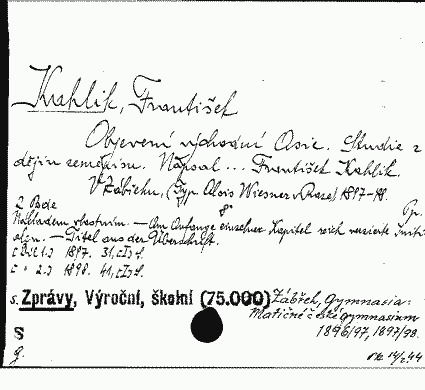 Kahlik, František
Objevení východní Asie. Studie z
dějin zeměkimu. Napsal ... František Kahlik.
V Zábřehu, (Typ. Alois Wiesner v Praze) 1897-98.
2 Bde 8° Pp.
Nákladem vlastním. — Am Anfange einzelner Kapitel reich verzierte Initi-
alen. — Titel aus der Überschrift.
1897. 31, S.
1898. 41, S.
s. Zprávy, Výroční, školní (75.000) Zábřeh, Gymnasia:
Matiční české gymnasium
1896/97, 1897/98.
S
g. 14/2.44